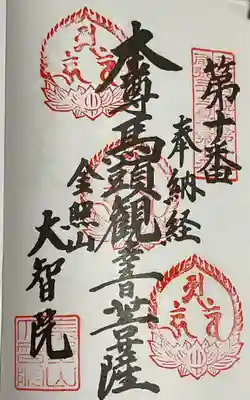 第十番
奉納経
本尊馬頭観音菩薩
金照山
大智院